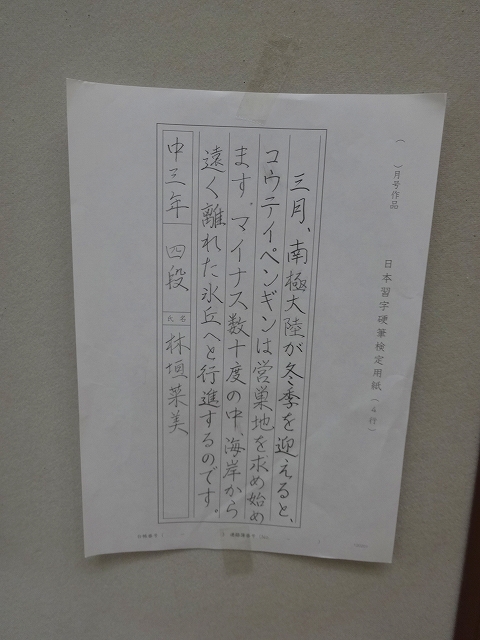 (　　)月号作品
日本習字硬筆検定用紙(4行)
三月、南極大陸が冬季を迎えると、
コウテイペンギンは営巣地を求め始め
ます。マイナス数十度の中、海岸から
遠く離れた氷丘へと行進するのです。
中三年 四段 氏名 林垣菜美